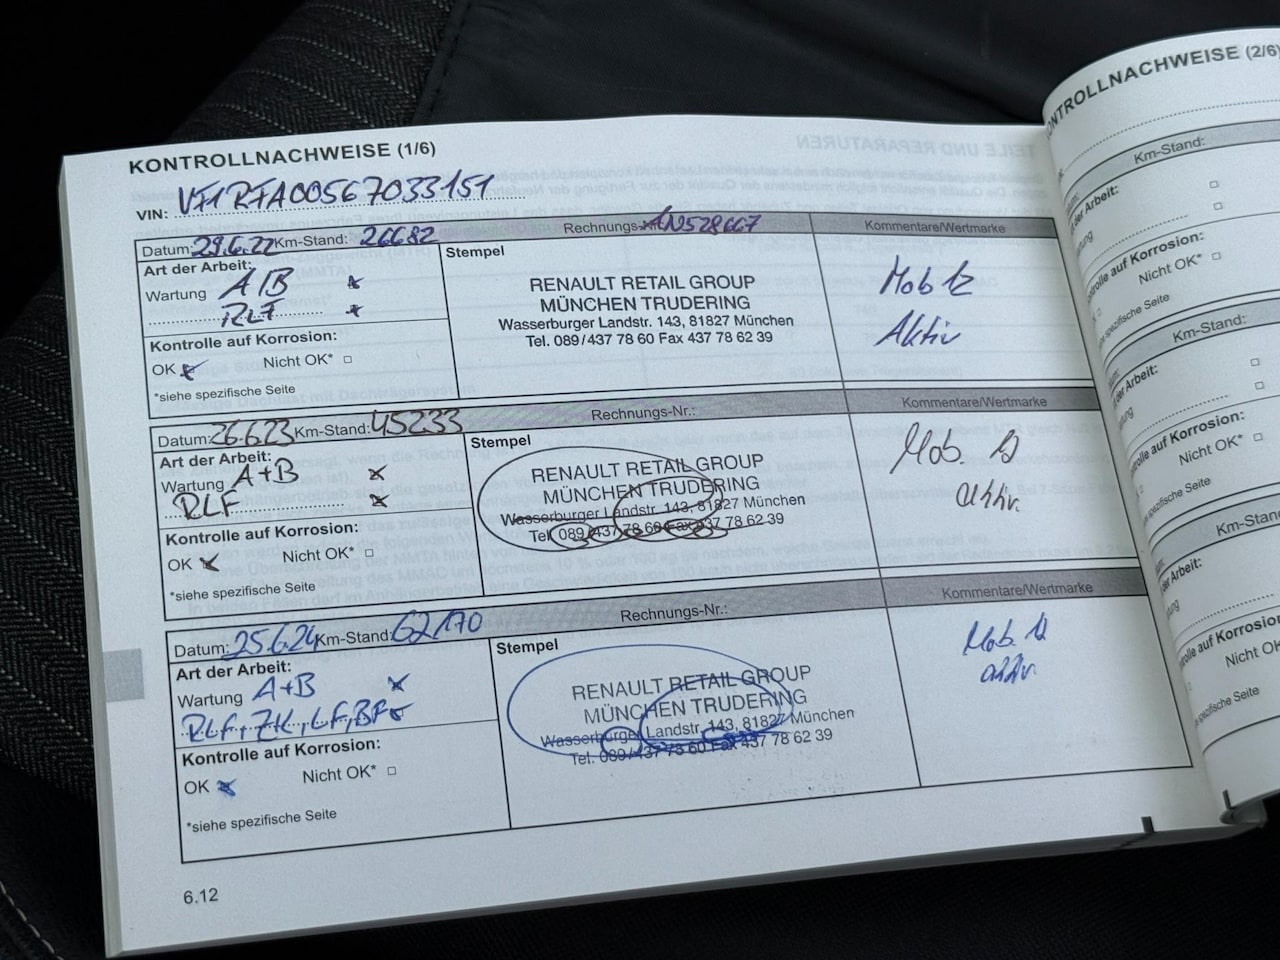 KONTROLLNACHWEISE (1/6)
VIN: VF1RFA00567033151
Datum: 29.6.22 Km-Stand: 26682 Rechnungs- Kommentare/Wertmarke
Art der Arbeit:
Wartung A/B
RLF
Kontrolle auf Korrosion:
OK Nicht OK*
*siehe spezifische Seite
Stempel
RENAULT RETAIL GROUP
MÜNCHEN TRUDERING
Wasserburger Landstr. 143, 81827 München
Tel. 089/437 78 60 Fax 437 78 62 39
Mob
Aktiv
Datum: 26.6.23 Km-Stand: 45233 Rechnungs-Nr.: Kommentare/Wertmarke
Art der Arbeit:
Wartung A+B
RLF
Kontrolle auf Korrosion:
OK Nicht OK*
*siehe spezifische Seite
Stempel
RENAULT RETAIL GROUP
MÜNCHEN TRUDERING
Wasserburger Landstr. 143, 81827 München
Tel. 089/437 78 60 Fax 437 78 62 39
Mob.
aktiv.
Datum: 25.6.24 Km-Stand: 62170 Rechnungs-Nr.: Kommentare/Wertmarke
Art der Arbeit:
Wartung A+B
RLF, ZK, LF, BF
Kontrolle auf Korrosion:
OK Nicht OK*
*siehe spezifische Seite
Stempel
RENAULT RETAIL GROUP
MÜNCHEN TRUDERING
Wasserburger Landstr. 143, 81827 München
Tel. 089/437 78 60 Fax 437 78 62 39
Mob.
aktiv.
6.12
KONTROLLNACHWEISE (2/6)
Km-Stand:
Arbeit:
Korrosion:
Nicht OK*
spezifische Seite
Km-Stand:
Arbeit:
Korrosion:
Nicht OK*
spezifische Seite
Km-Stand:
Arbeit:
Korrosion:
Nicht OK*
spezifische Seite